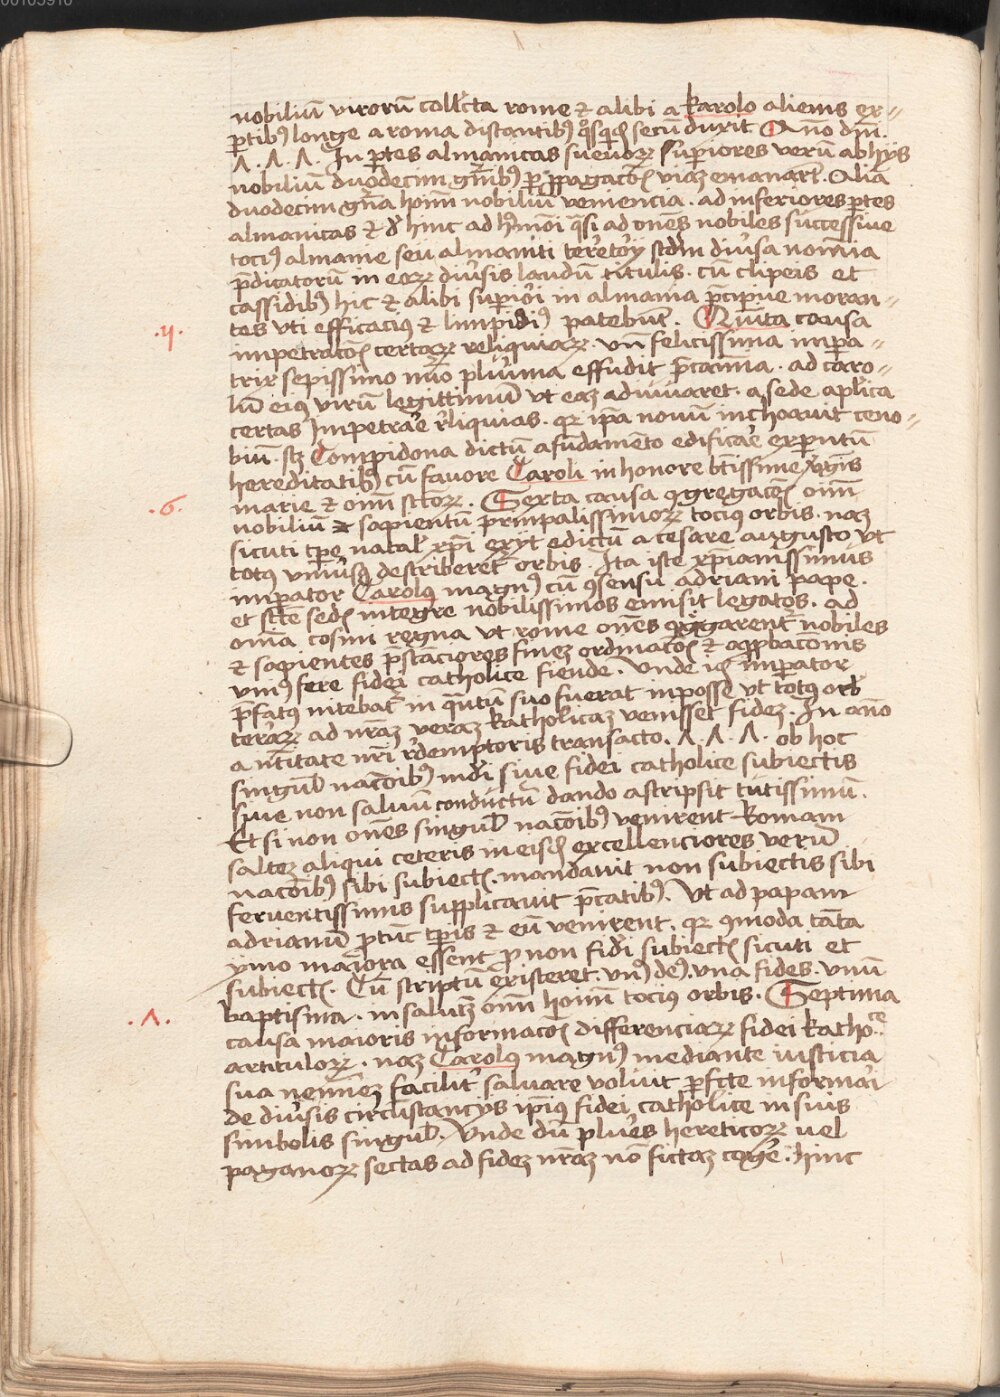 nobiliū virorū coll'cta rome & alibi a karolo alienis ex〃
ꝑtibꝰ longe a roma distantibꝰ secū duxit Anno dm̄.
Λ . Λ . Λ . In ꝑtes almanicas sueuoꝝ suꝑiores verū ab hijs
nobiliū duodecim gn̄ibꝰ ꝑ ꝓpagacōꝫ viaꝫ emanar̄t . Alia
duodecim gn̄a hoīm nobiliū veniencia . ad inferiores ꝑtes
almanicas & hinc ad qͣsi ad on̄es nobiles successiue
tociꝰ almanie seu almaniti scd̄m diu'sa nomīa
p̄dicatorū in eoꝝ diu'sis laudū titulis . cū clipeis et
cassidibꝰ hic & alibi suꝑi'oi in almania p̄cipue moran〃
tes vti efficaciꝰ & limpidiꝰ patebūt . Quīta causa
.5.
impetracōꝫ certaꝝ reliquiaꝝ . vn̄ felicissima impa〃
trix sepissimo plurima effudit p̄camīa . ad caro〃
lū eiꝰ virū legittimū vt eaꝫ adiuuaret . a sede aplīca
certas impetra'e r'liquias . qꝛ ip̄a nouū inchoauit ceno〃
biū . sꝫ Compidona dictū a fūdamēto edifica'e exp̄ntū
hereditatibꝰ cū fauore Caroli in honore btīssime v̓gīis
marie & oīm sctōꝝ . Sexta causa ꝯgregacōꝫ oīm
.6.
nobiliū & sapientū prīcipalissimoꝝ tociꝰ orbis . naꝫ
sicuti tꝑe natal' xp̄i exijt edictū a cesare augusto vt
totꝰ vniu'sꝰ describeret̄ orbis . Ita iste xp̄ianissimus
imꝑator Carolus magnꝰ cū ꝯsensu adriani pape .
et sctē sedꝫ integre nobilissimos emisit legatos . ad
oīa cosmi regna vt rome on̄es ꝯgregarent̄ nobiles
& sapientes p̄stāciores fineꝫ ordinacōꝫ & apꝓbacōnis
vniꝰ fere fidei catholice fiende . Vnde iꝫ imꝑator
p̄fatꝰ nitebat̄ in qͣntū suo fuerat inposse vt totꝰ orb'
ter'aꝝ ad nr̄aꝫ veraꝫ katholicaꝫ venisset fideꝫ . In anō
a nt̄itate nr̄i r'demptoris transacto . Λ . Λ . Λ . ob hoc
singul' nacōibꝰ siue fidei catholice subiectis
siue non saluū conductū dando astripsit tutissimū .
Et si non on̄es singul' nacōibꝰ venirent Romam
salteꝫ aliqui ceteris in eisꝫ excellenciores verū
nacōibꝰ sibi subiectꝫ . mandauit non subiectis sibi
feruentissimis supplicauit p̄catibꝰ . Vt ad papam
adrianū ꝓtūc tꝑis & eū venirent . qꝛ ꝯmoda tāta
ymo maiora essent ꝓ non fid'i subiectꝫ sicuti et
subiectꝫ . Cū scriptū existeret . vnꝰ deꝰ . vna fides . vnū
baptisma . in salutꝫ oīm hoīm tociꝰ orbis . Septima
.Λ.
causa maioris informacōꝫ differenciaꝝ fidei katho.ce
articuloꝝ . naꝫ Carolus magnꝰ mediante iusticia
sua nemineꝫ facilit̓ saluare voluit ꝑfcte informa'i
de diu'sis circūstancijs ip̄iꝰ fidei catholice in suis
simbolis singul' . Vnde dū plu'es hereticoꝝ uel
paganoꝝ sectas ad fideꝫ nr̄aꝫ nō fictaꝫ coge' . hinc